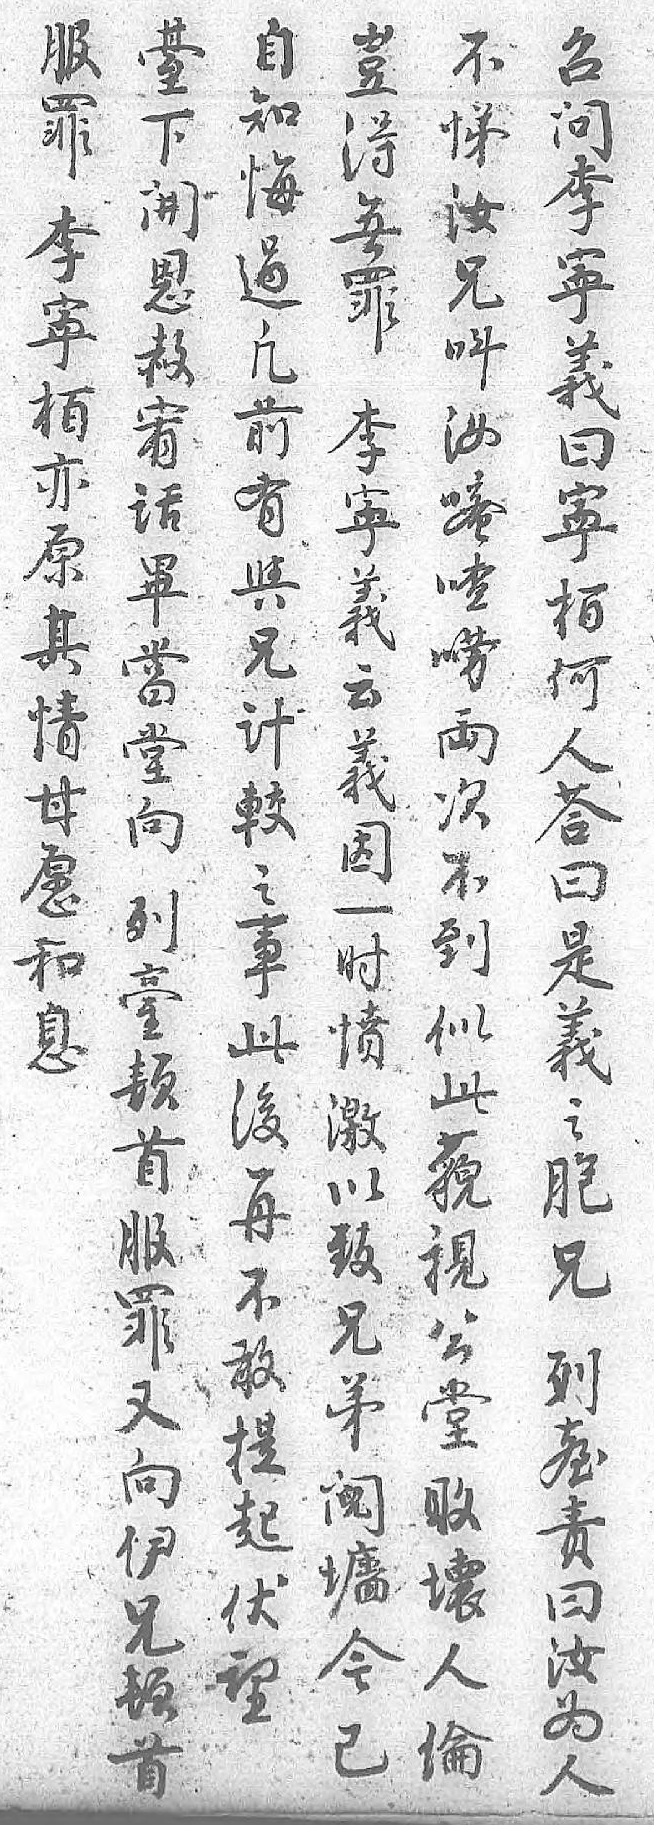 召问李寧義曰寧栢何人荅曰是義之胞兄列臺责曰汝为人
不悌汝兄呌汝嗌喳嘮両次不到似此藐視公堂敗壞人倫
豈得無罪李寧義云義因一时憤激以致兄弟䦧墻今已
自知悔過凢前有與兄计較之事此後再不敢提起伏望
臺下開恩赦宥话畢當堂向列臺頓首服罪又向伊兄頓首
服罪李寧栢亦原其情甘愿和息